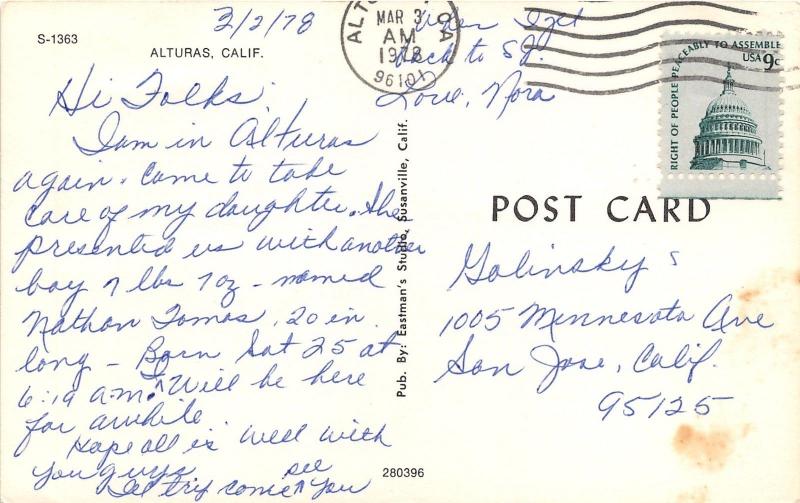 S-1363
ALTURAS, CALIF.
3/2/78
Hi Folks,
I am in Alturas
again. Came to take
care of my daughter. She
presented us with another
boy 7 lbs 7 oz - named
Nathan Tomas, 20 in.
long - Born Sat 25 at
6:19 am. I will be here
for awhile.
Hope all is well with
you guys
I'll try come ^ see you
When I get
back to SJ.
Love, Nora
ALTURAS, CA
MAR 3
AM
1978
96101
RIGHT OF PEOPLE PEACEABLY TO ASSEMBLE
USA 9c
Pub. By: Eastman's Studio, Susanville, Calif.
POST CARD
Golinsky's
1005 Minnesota Ave
San Jose, Calif.
95125
280396